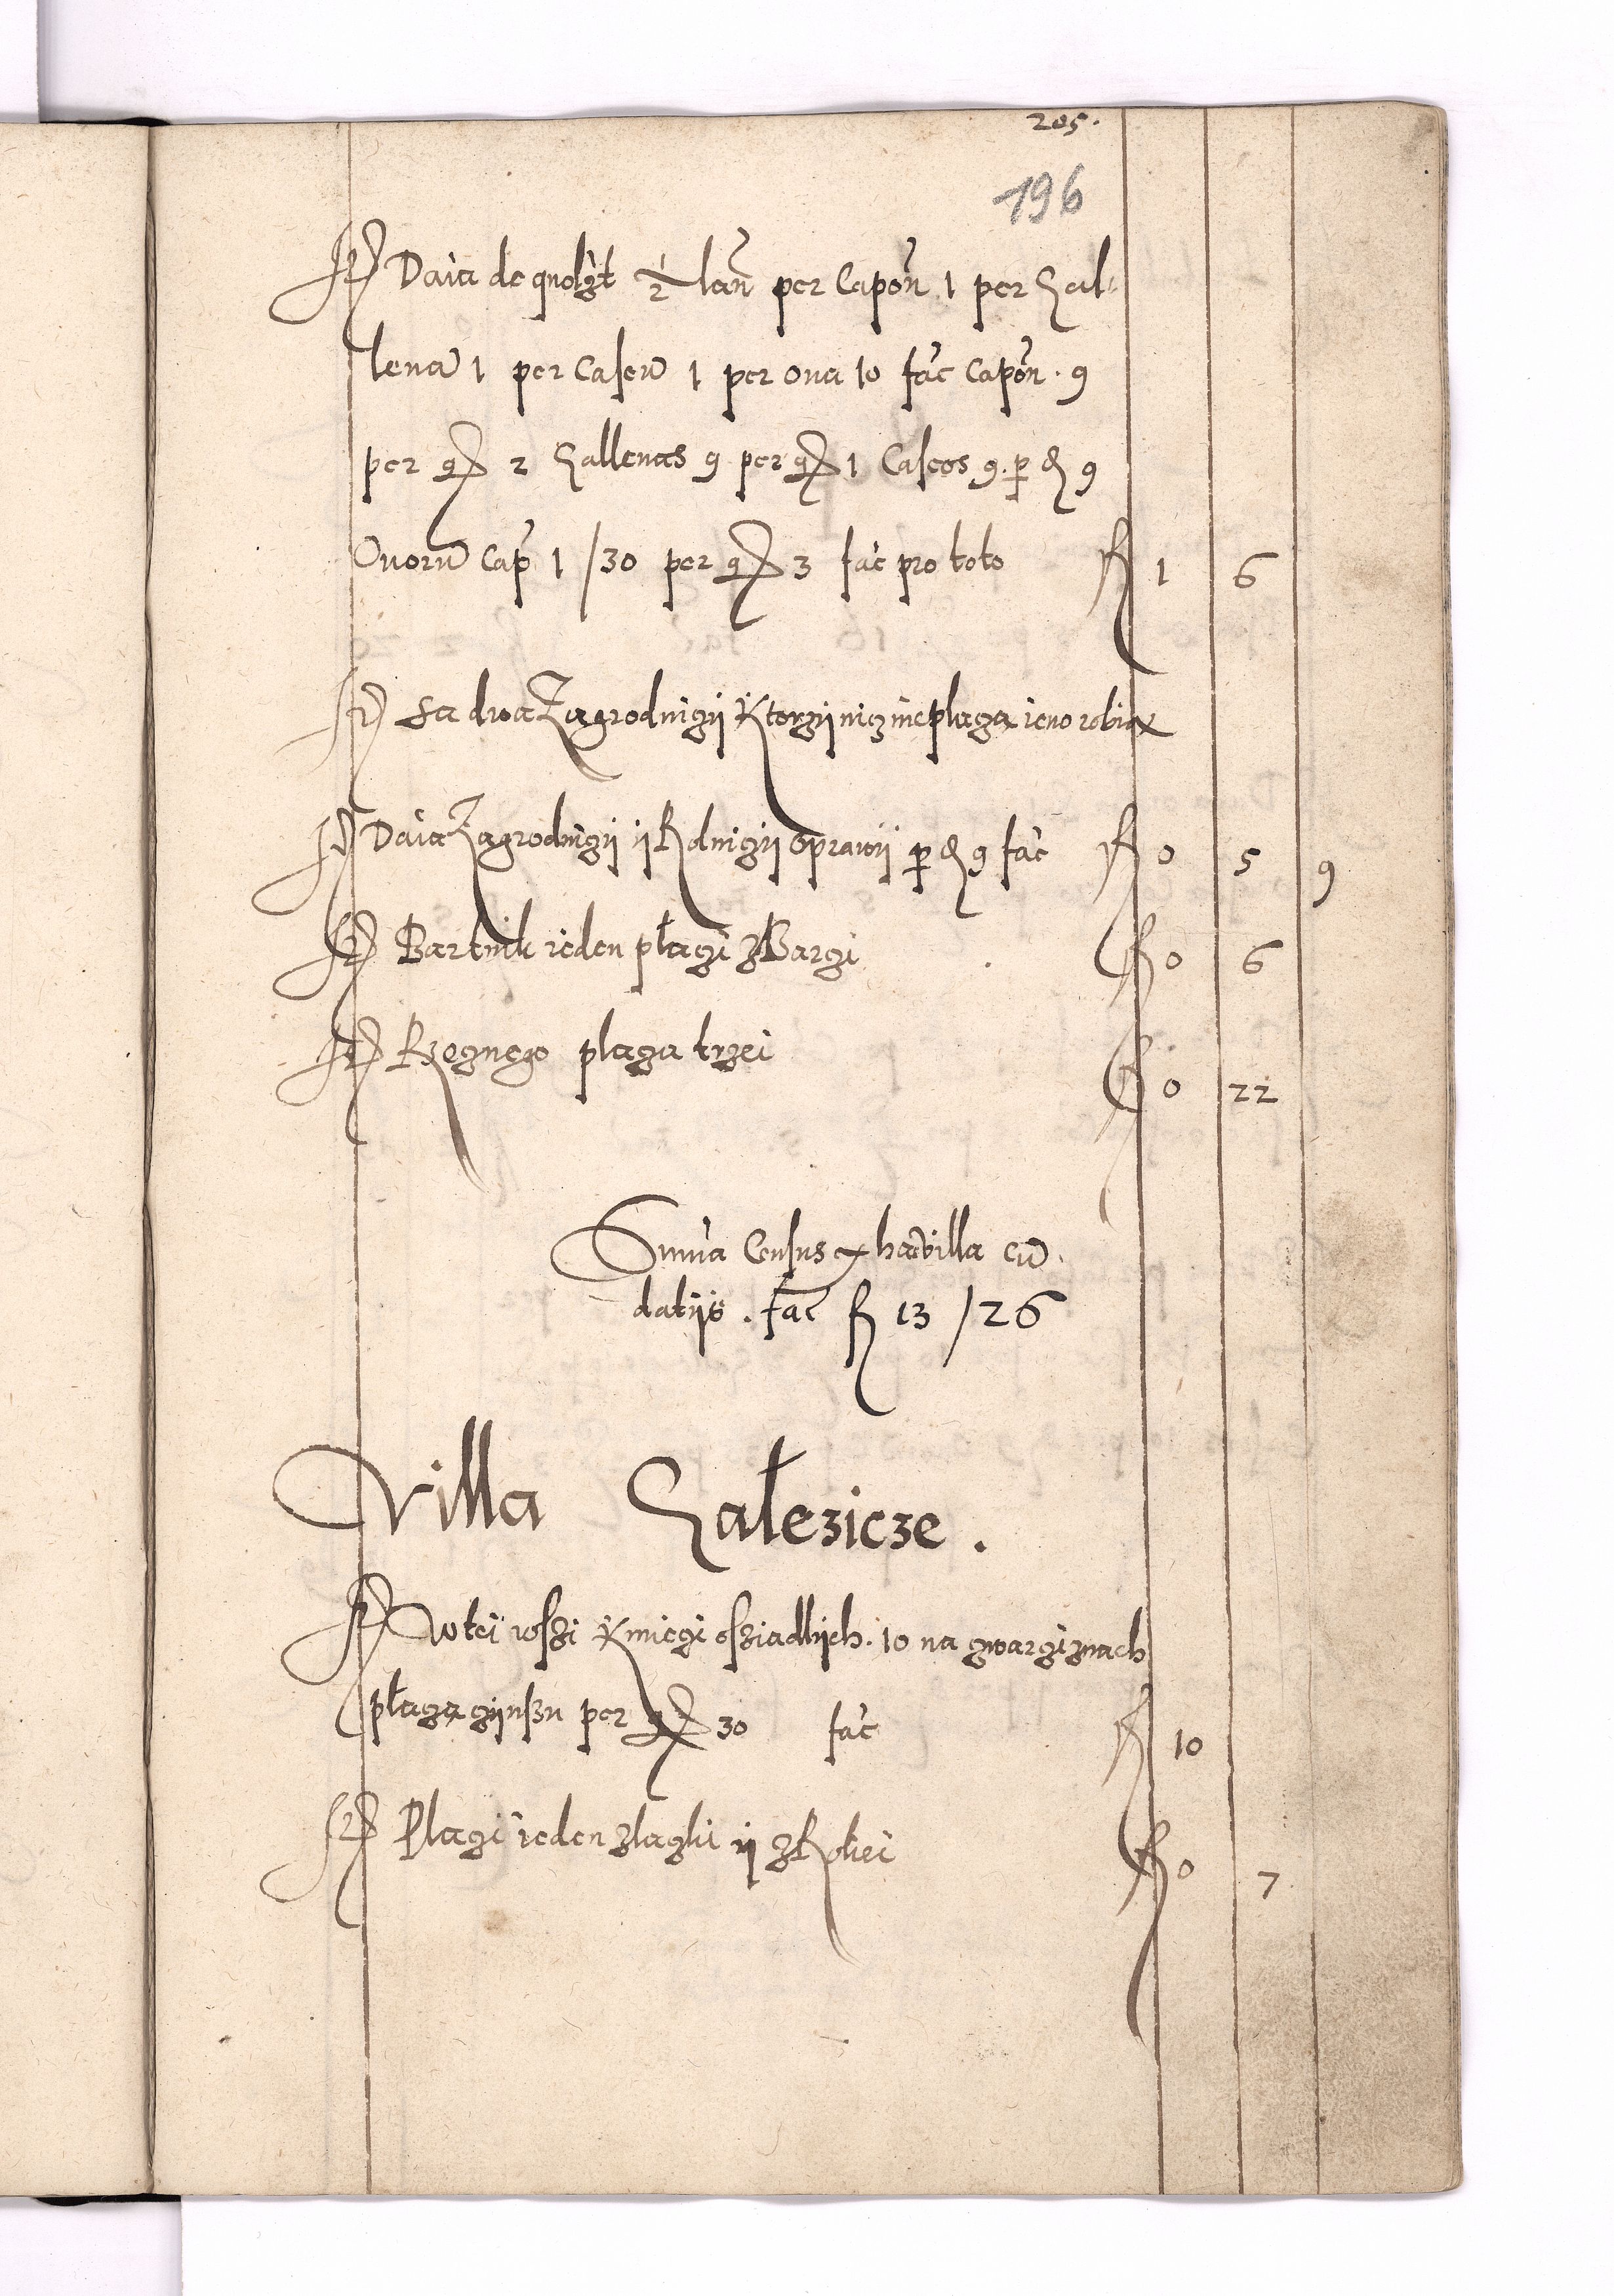 205.
196
It Daia de quolȝt ½ lan̄ per Capon̄ 1 per Gal-
lenā 1 per Caseū 1 per oua 10 fac̄ Capon̄. 9
per gr 2 Gallenas 9 per gr 1 Caseos 9. p̱ d 9
Ouorū Cap̄ 1/30 per gr 3 fac̄ pro toto fl 1 6
It Sa dwa Zagrodnigÿ Ktorzÿ nizineplaga ieno robią
It Daia Zagrodnigÿ ÿ Rolnigÿ oprawÿ p̱ d 9 fac̄ fl 0 5 9
It Bartnik ieden płagi z Bargi fl 0 6
It Rzegnego plaga trzei fl 0 22
Sum̄a Census ex hac villa cū
datÿs. fac̄ fl 13/26
Villa Gałezicze.
It W tei wszi Kmiegi osziadlÿch. 10 na gwargiznach
płagą gÿnszu per gr 30 fac̄ fl 10
It Plagi ieden z laghi ÿ z Rolei fl 0 7